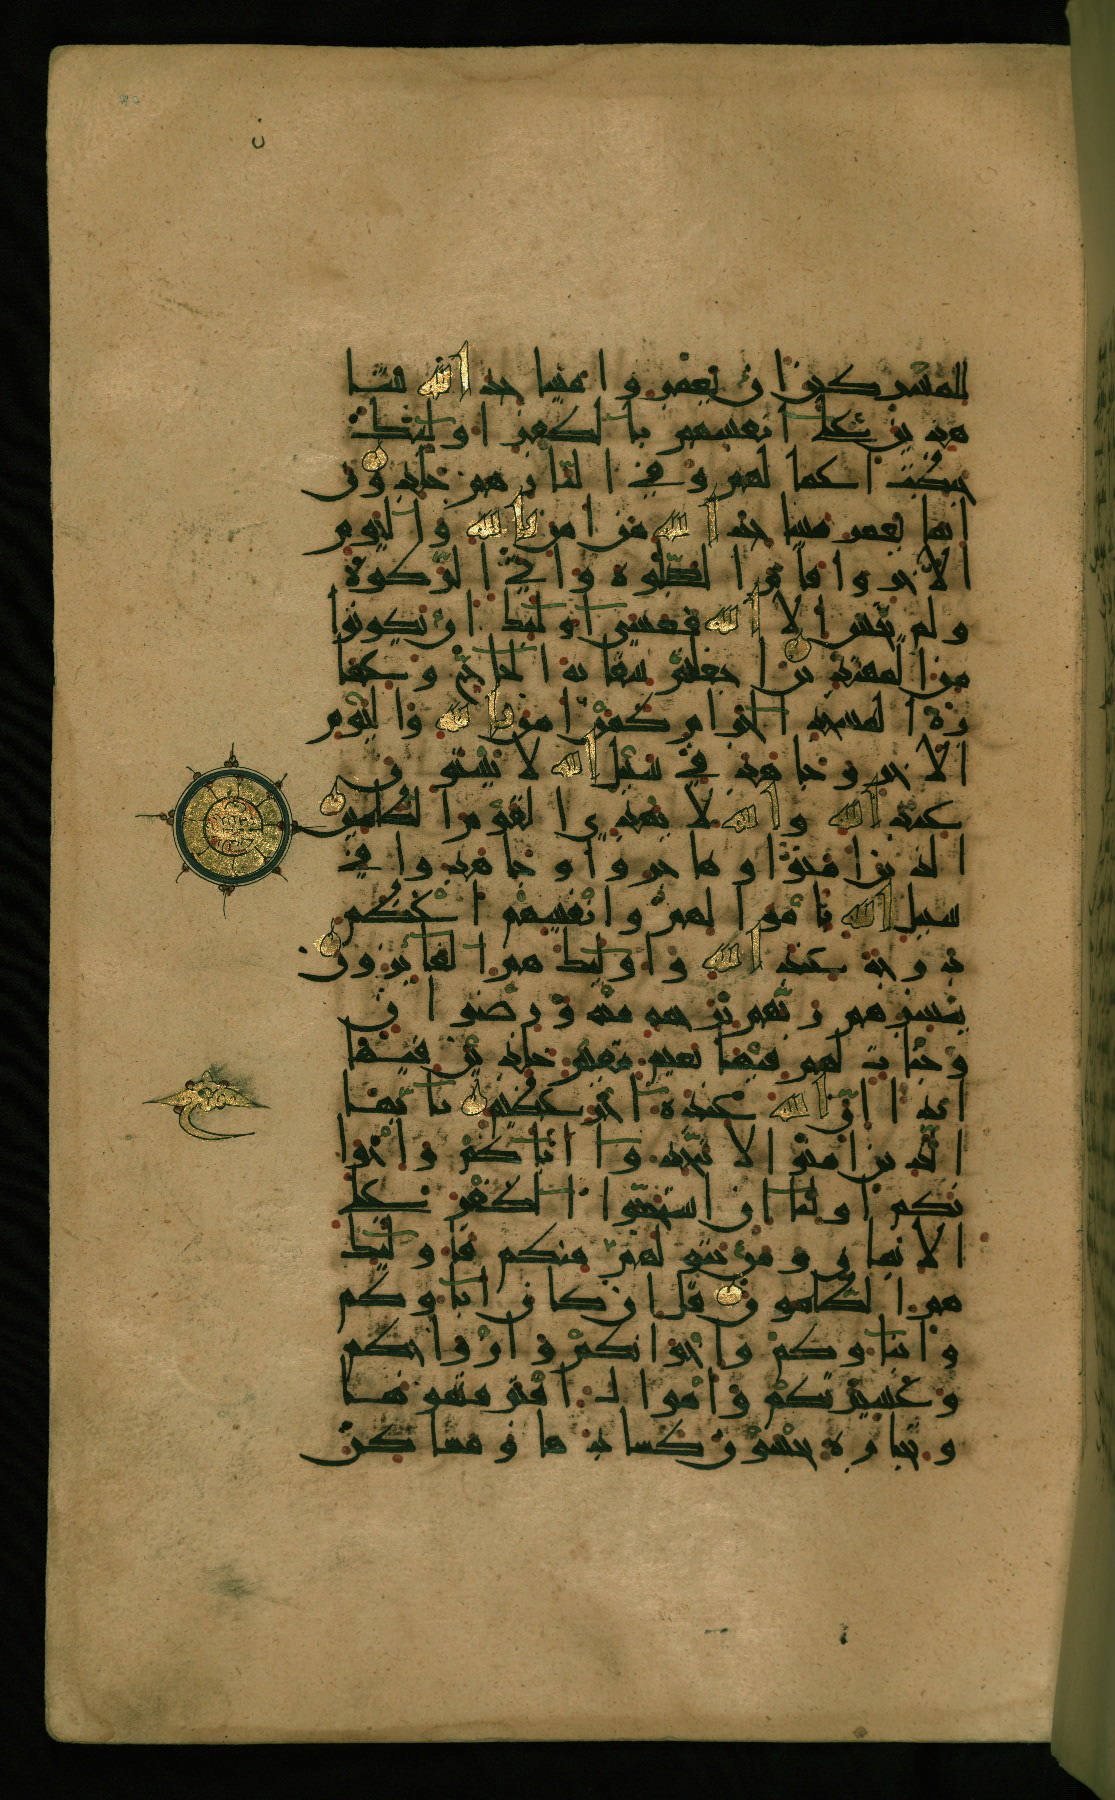 للمشركين ان يعمروا مساجد الله شا
هدين على انفسهم بالكفر اولئك
حبطت اعمالهم وفي النار هم خالدون
انما يعمر مساجد الله من امن بالله واليوم
الاخر واقام الصلوة واتى الزكوة
ولم يخش الا الله فعسى اولئك ان يكونوا
من المهتدين اجعلتم سقاية الحاج وعما
رة المسجد الحرام كمن امن بالله واليوم
الاخر وجاهد في سبيل الله لا يستون
عند الله والله لا يهدي القوم الظلمين
الذين امنوا وهاجروا وجاهدوا في
سبيل الله باموالهم وانفسهم اعظم
درجة عند الله واولئك هم الفائزون
يبشرهم ربهم برحمة منه ورضوان
وجنات لهم فيها نعيم مقيم خالدين فيها
ابدا ان الله عنده اجر عظيم يا ايها
الذين امنوا لا تتخذوا اباكم واخوا
نكم اوليا ان استحبوا الكفر على
الايمان ومن يتولهم منكم فاولئك
هم الظلمون قل ان كان اباوكم
وابناوكم واخوانكم وازواجكم
وعشيرتكم واموال اقترفتموها
وتجارة تخشون كسادها ومساكن